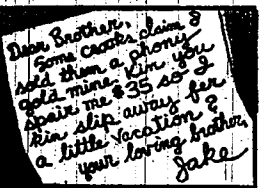 Dear Brother,
Some crooks claim I
sold them a phony
gold mine. Kin you
spair me $35 so I
kin slip away fer
a little vacation?
your loving brother,
Jake